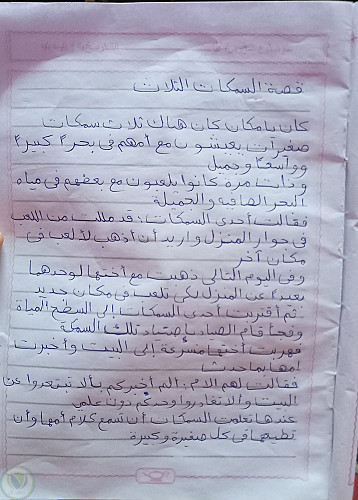 قصة السمكات الثلاث
كان يا مكان كان هناك ثلاث سمكات
صغيرات يعيشون مع أمهم في بحراً كبيراً
وواسعاً وجميل
وذات مرة كانوا يلعبون مع بعضهم في مياه
البحر الصافية والجميلة
فقالت أحدى السمكات: قد مللت من اللعب
في جوار المنزل واريد أن أذهب لألعب في
مكان آخر
وفي اليوم التالي ذهبت مع أختها لوحدهما
بعيداً عن المنزل لكي تلعب في مكان جديد
ثم أقتربت أحدى السمكات إلى السطح المياة
وفجأ قام الصياد بإصتياد تلك السمكة
فهربت أختها مسرعة إلى البيت وأخبرت
امها بما حدث
فقالت لهم الام: ألم أخبركم بألا تبتعدوا عن
البيت وألا تغادروا وحدكم دون علمي
عندها تعلمت السمكات أن تسمع كلام أمها وأن
تطيعها في كل صغيرة وكبيرة